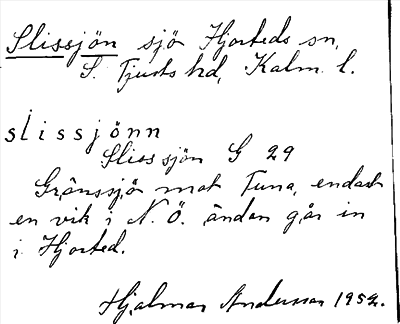 Slissjön sjö Hjorteds sn,
S. Tjusts hd, Kalm. l.
slissjönn
Slisssjön G 29
Gränssjö mot Tuna, endast
en vik i N.Ö. ändan går in
i Hjorted.
Hjalmar Andersson 1952.